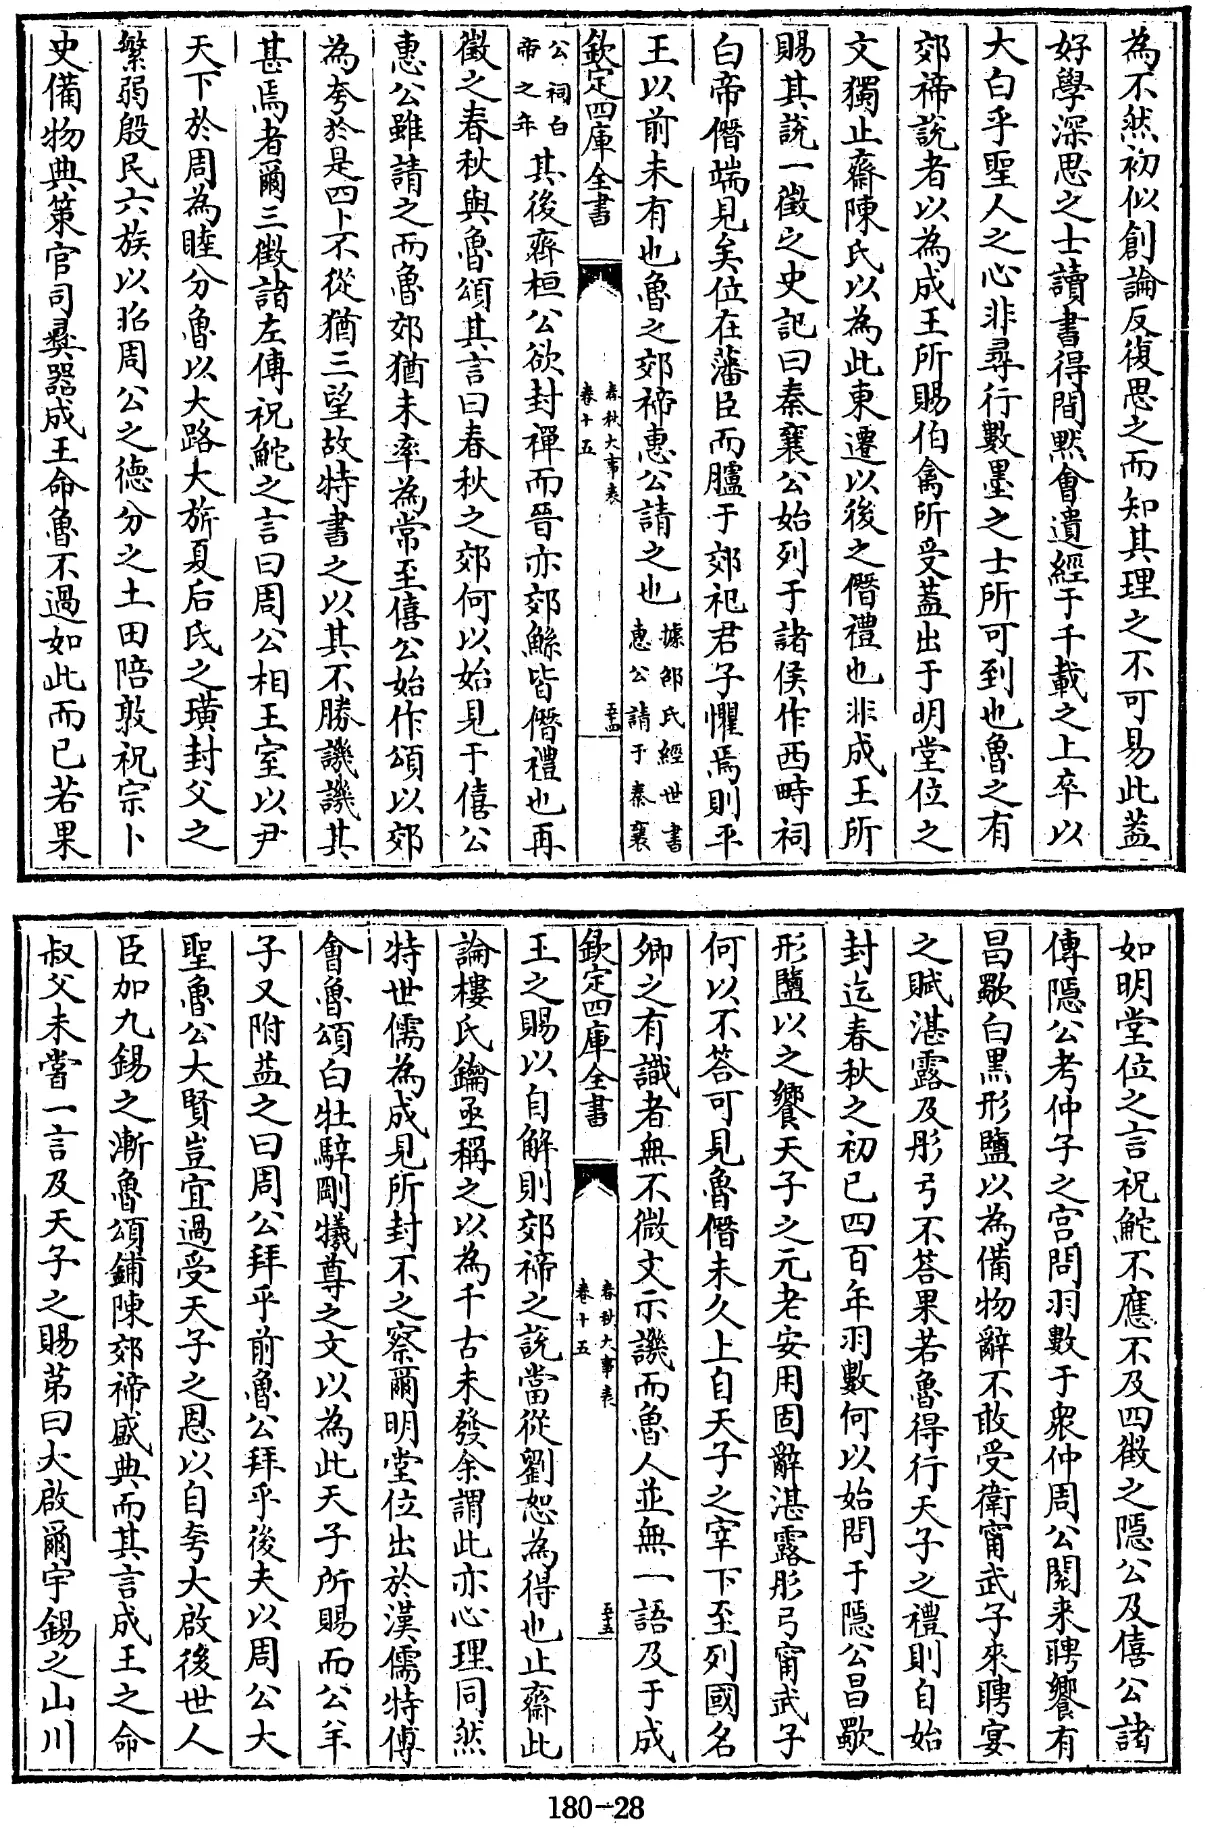 為不然初似創論反復思之而知其理之不可易此葢
好學深思之士讀書得間黙會遺經于千載之上卒以
大白乎聖人之心非尋行數墨之士所可到也魯之有
郊禘說者以為成王所賜伯禽所受葢出于明堂位之
文獨止齋陳氏以為此東遷以後之僭禮也非成王所
賜其說一徵之史記曰秦襄公始列于諸侯作西畤祠
白帝僭端見矣位在藩臣而臚于郊祀君子懼焉則平
王以前未有也魯之郊禘惠公請之也據邵氏經世書惠公請于秦襄
欽定四庫全書
春秋大事表
卷十五
至四
公祠白帝之年其後齊桓公欲封禪而晉亦郊鯀皆僭禮也再
徵之春秋與魯頌其言曰春秋之郊何以始見于僖公
惠公雖請之而魯郊猶未率為常至僖公始作頌以郊
為夸於是四卜不從猶三望故特書之以其不勝譏譏其
甚焉者爾三徵諸左傳祝鮀之言曰周公相王室以尹
天下於周為睦分魯以大路大旂夏后氏之璜封父之
繁弱殷民六族以昭周公之德分之土田陪敦祝宗卜
史備物典策官司彝器成王命魯不過如此而已若果
如明堂位之言祝鮀不應不及四徵之隱公及僖公諸
傳隱公考仲子之宮問羽數于衆仲周公閱来聘饗有
昌歜白黒形鹽以為備物辭不敢受衛甯武子來聘宴
之賦湛露及彤弓不答果若魯得行天子之禮則自始
封迄春秋之初已四百年羽數何以始問于隱公昌歜
形鹽以之饗天子之元老安用固辭湛露彤弓甯武子
何以不答可見魯僭未久上自天子之宰下至列國名
卿之有識者無不微文示譏而魯人並無一語及于成
欽定四庫全書
春秋大事表
卷十五
至五
王之賜以自解則郊禘之說當從劉恕為得也止齋此
論樓氏鑰亟稱之以為千古未發余謂此亦心理同然
特世儒為成見所封不之察爾明堂位出於漢儒特傅
會魯頌白牡騂剛犧尊之文以為此天子所賜而公羊
子又附益之曰周公拜乎前魯公拜乎後夫以周公大
聖魯公大賢豈宜過受天子之恩以自夸大啟後世人
臣加九錫之漸魯頌鋪陳郊禘盛典而其言成王之命
叔父未嘗一言及天子之賜第曰大啟爾宇錫之山川
180-28